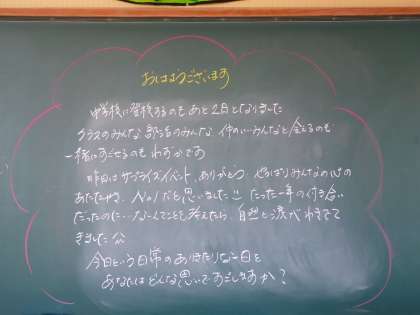 おはようございます
中学校に登校するのもあと2日となりました
クラスのみんな、部活のみんな、仲のいいみんなと会えるのも
一緒にすごせるのもわずかです
昨日はサプライズイベント、ありがとう やっぱりみんなの心の
あたたかさ、No.1だと思いました!! たった一年の付き合い
だったのに…なーんてことを考えたら、自然と涙がわきでて
きました
今日という日常のあたりまえな一日を
あなたはどんな思いですごしますか?